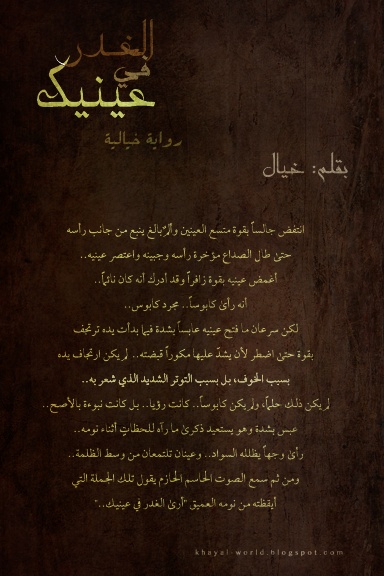 الغدر
في
عينيك
رواية خيالية
بقلم: خيال
انتفض جالساً بقوة متسع العينين وألمٌ بالغ ينبع من جانب رأسه
حتى طال الصداع مؤخرة رأسه وجبينه واعتصر عينيه..
أغمض عينيه بقوة زافراً وقد أدرك أنه كان نائماً..
أنه رأى كابوساً.. مجرد كابوس..
لكن سرعان ما فتح عينيه عابساً بشدة فيما بدأت يده ترتجف
بقوة حتى اضطر لأن يشدّ عليها مكوراً قبضته.. لم يكن ارتجاف يده
بسبب الخوف، بل بسبب التوتر الشديد الذي شعر به..
لم يكن ذلك حلماً، ولم يكن كابوساً.. كانت رؤيا.. بل كانت نبوءة بالأصح..
عبس بشدة وهو يستعيد ذكرى ما رآه للحظاتٍ أثناء نومه..
رأى وجهاً يظلله السواد.. وعينان تلتمعان من وسط الظلمة..
ومن ثم سمع الصوت الحاسم الحازم يقول تلك الجملة التي
أيقظته من نومه العميق "أرى الغدر في عينيك.."
khayal-world.blogspot.com